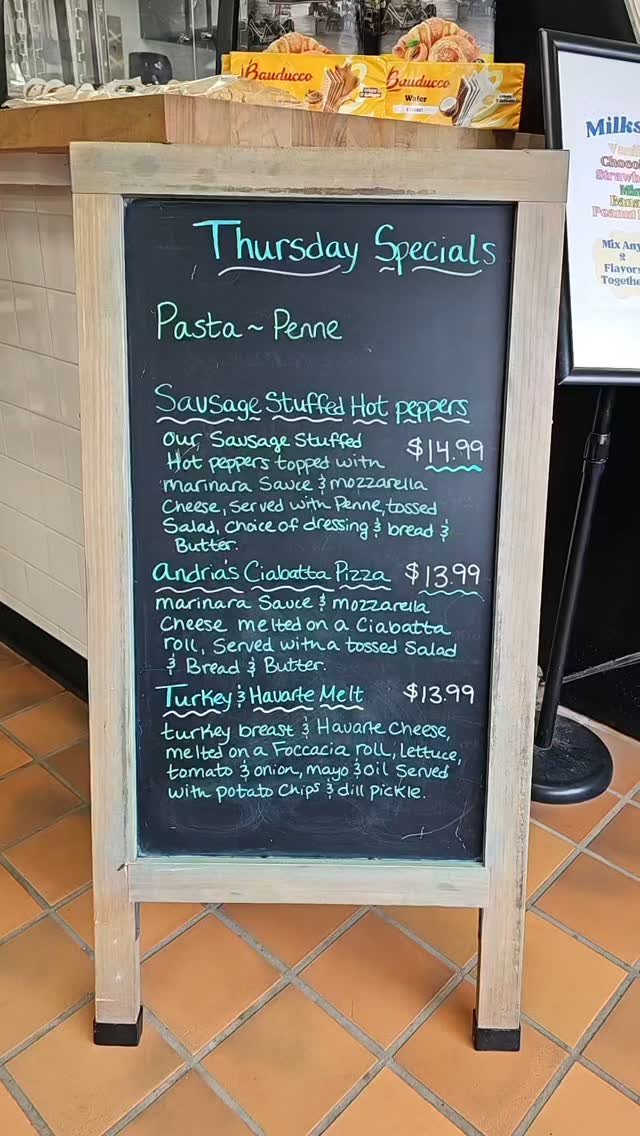 Bauducco
Bauducco
Wafer
Thursday Specials
Pasta ~ Penne
Sausage Stuffed Hot peppers
our Sausage Stuffed
$14.99
Hot peppers topped with
marinara Sauce & mozzarella
Cheese, Served with Penne, tossed
Salad, choice of dressing & bread &
Butter.
Andria's Ciabatta Pizza $13.99
marinara Sauce & mozzarella
Cheese melted on a Ciabatta
roll, Served with a tossed Salad
& Bread & Butter.
Turkey & Havarte Melt $13.99
turkey breast & Havarte Cheese,
melted on a Foccacia roll, lettuce,
tomato & onion, mayo & oil Served
with potato Chips & dill pickle.
Milks
Vani
Choco
Strawb
Min
Bana
Peanut
Mix Any
2
Flavors
Togethe